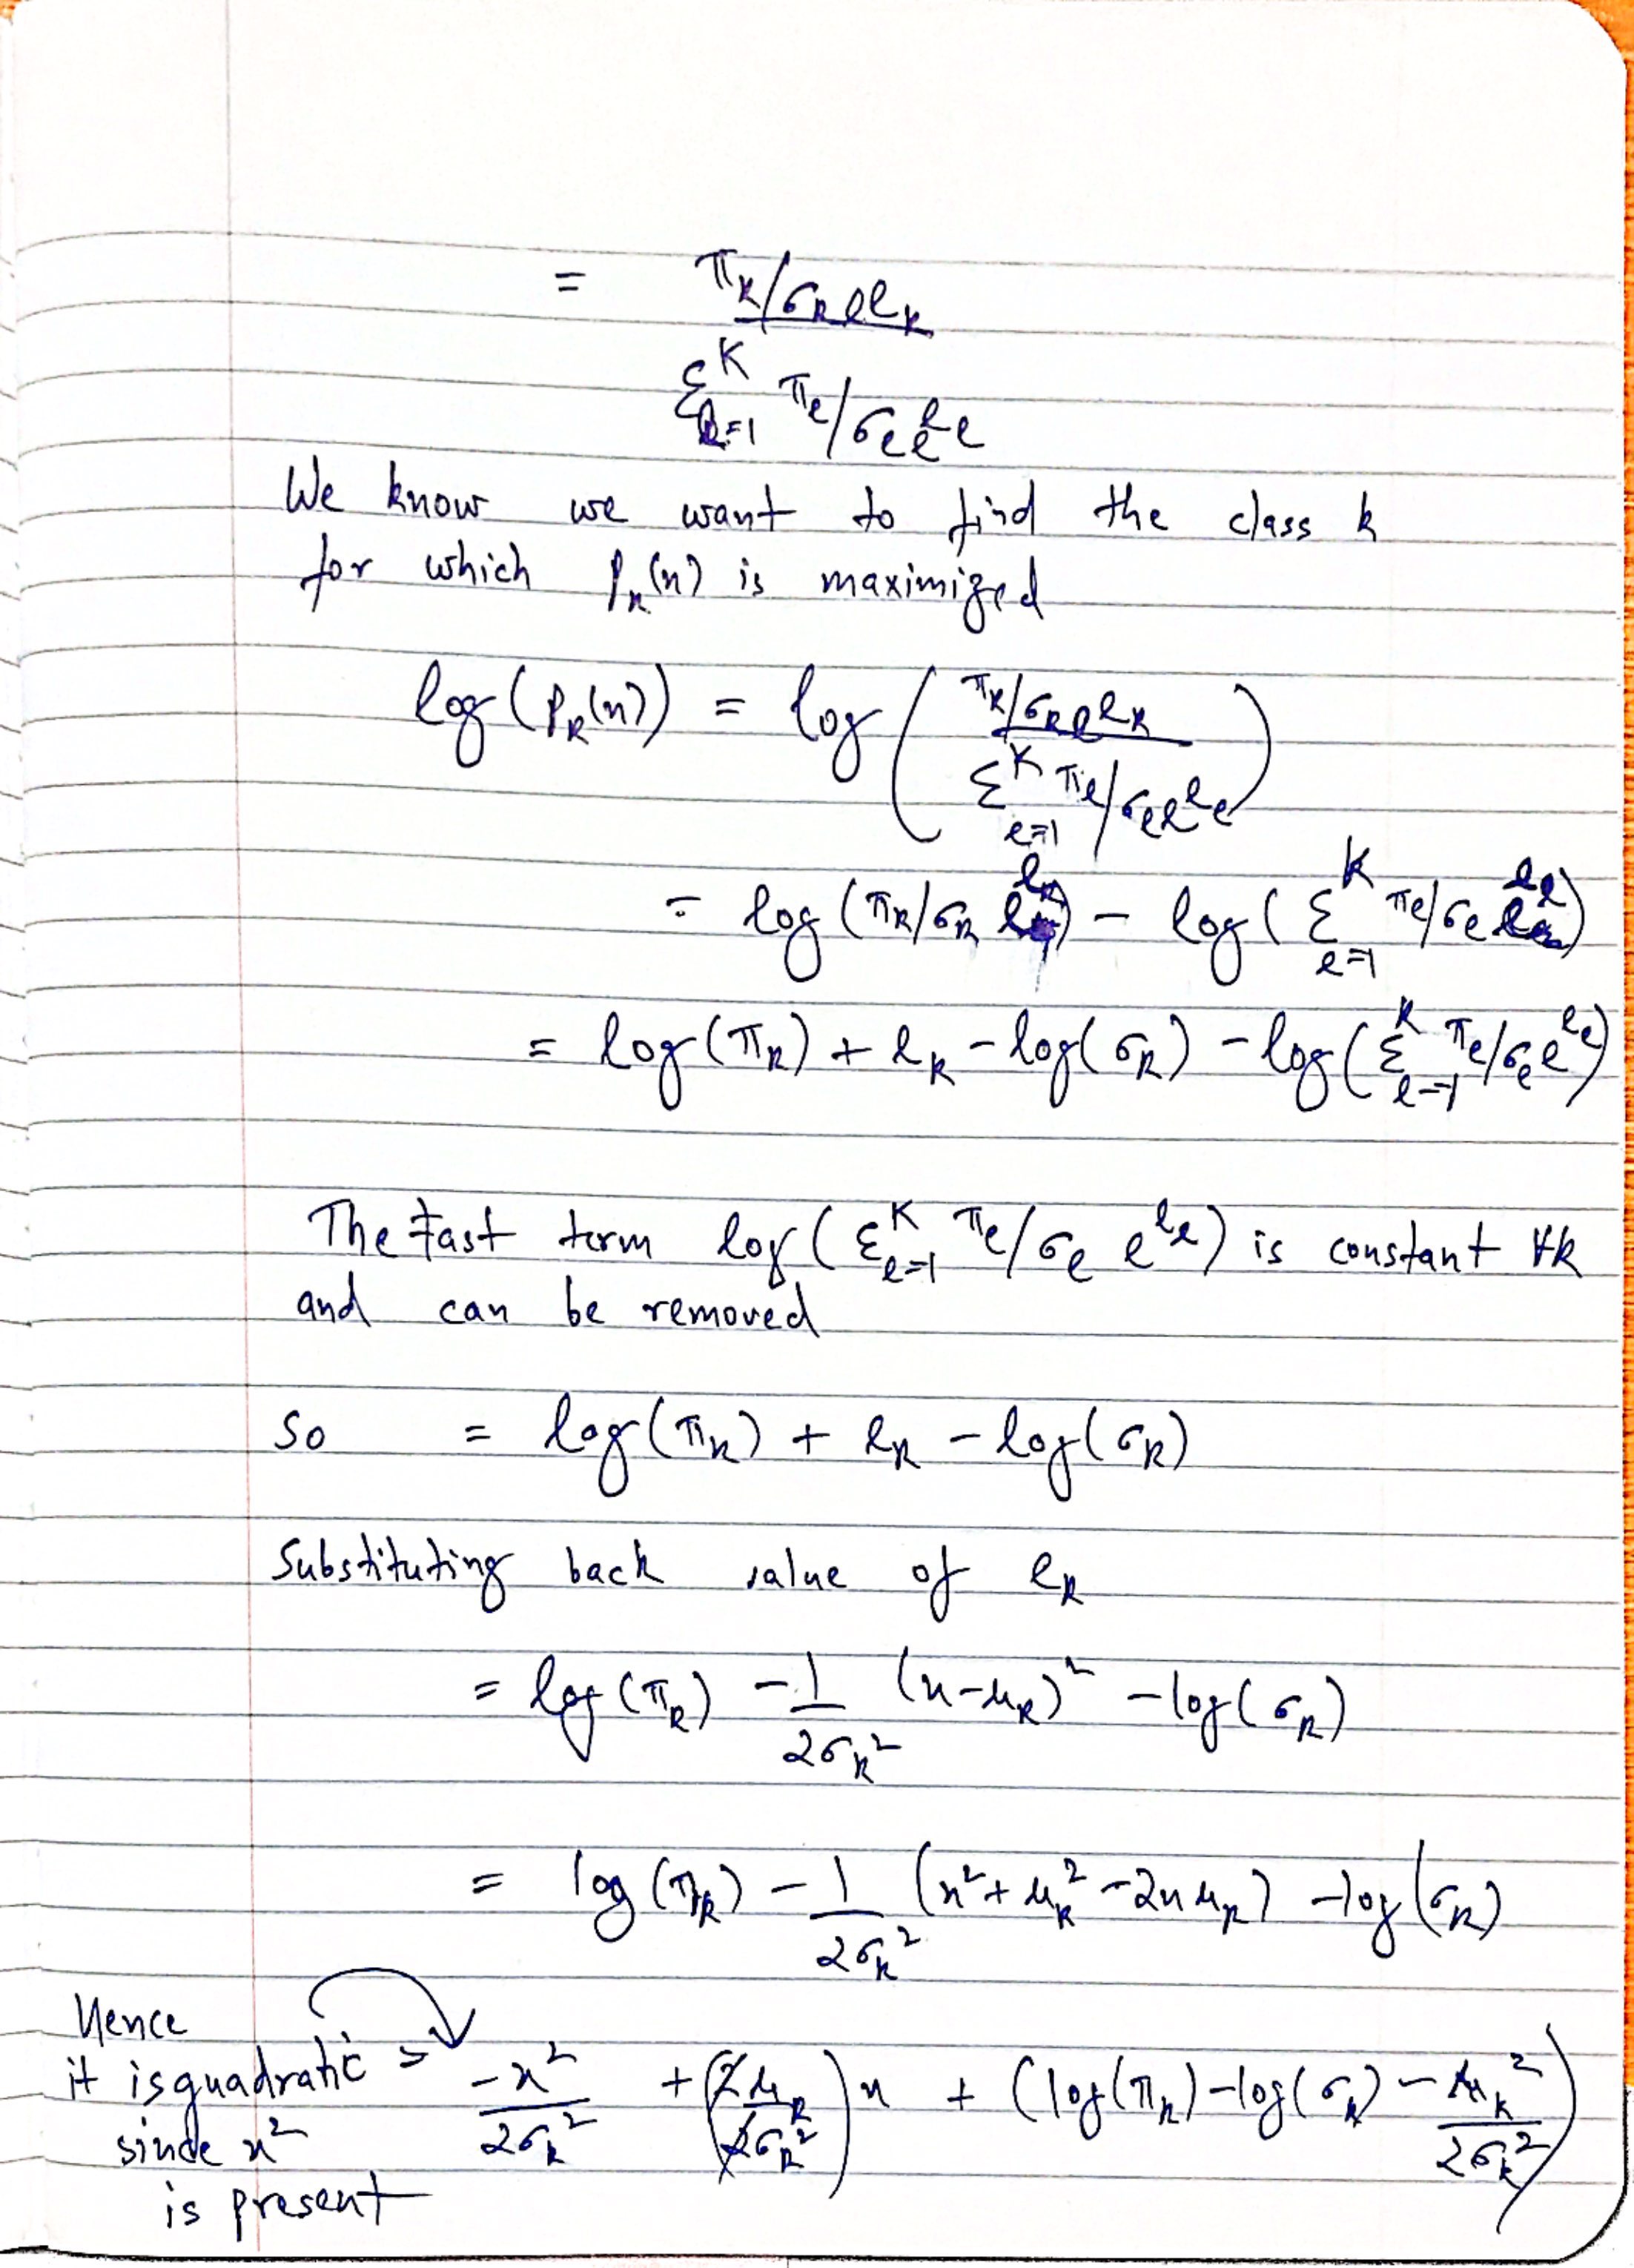 = π_k/σ_k e l_k
Σ^K_{l=1} π_l/σ_l e^{l_l}
We know we want to find the class k
for which p_k(x) is maximized
log(p_k(x)) = log ( π_k/σ_k e l_k
Σ^K_{l=1} π_l/σ_l e^{l_l} )
= log(π_k/σ_k e^{l_k}) - log(Σ^K_{l=1} π_l/σ_l e^{l_l})
= log(π_k) + l_k - log(σ_k) - log(Σ^K_{l=1} π_l/σ_l e^{l_l})
The last term log(Σ^K_{l=1} π_l/σ_l e^{l_l}) is constant ∀k
and can be removed
So = log(π_k) + l_k - log(σ_k)
Substituting back value of l_k
= log(π_k) - 1/2σ_k² (x-μ_k)² - log(σ_k)
= log(π_k) - 1/2σ_k² (x² + μ_k² - 2xμ_k) - log(σ_k)
Hence
it is quadratic = -x²/2σ_k² + (2μ_k/2σ_k²)x + (log(π_k) - log(σ_k) - μ_k²/2σ_k²)
since x²
is present